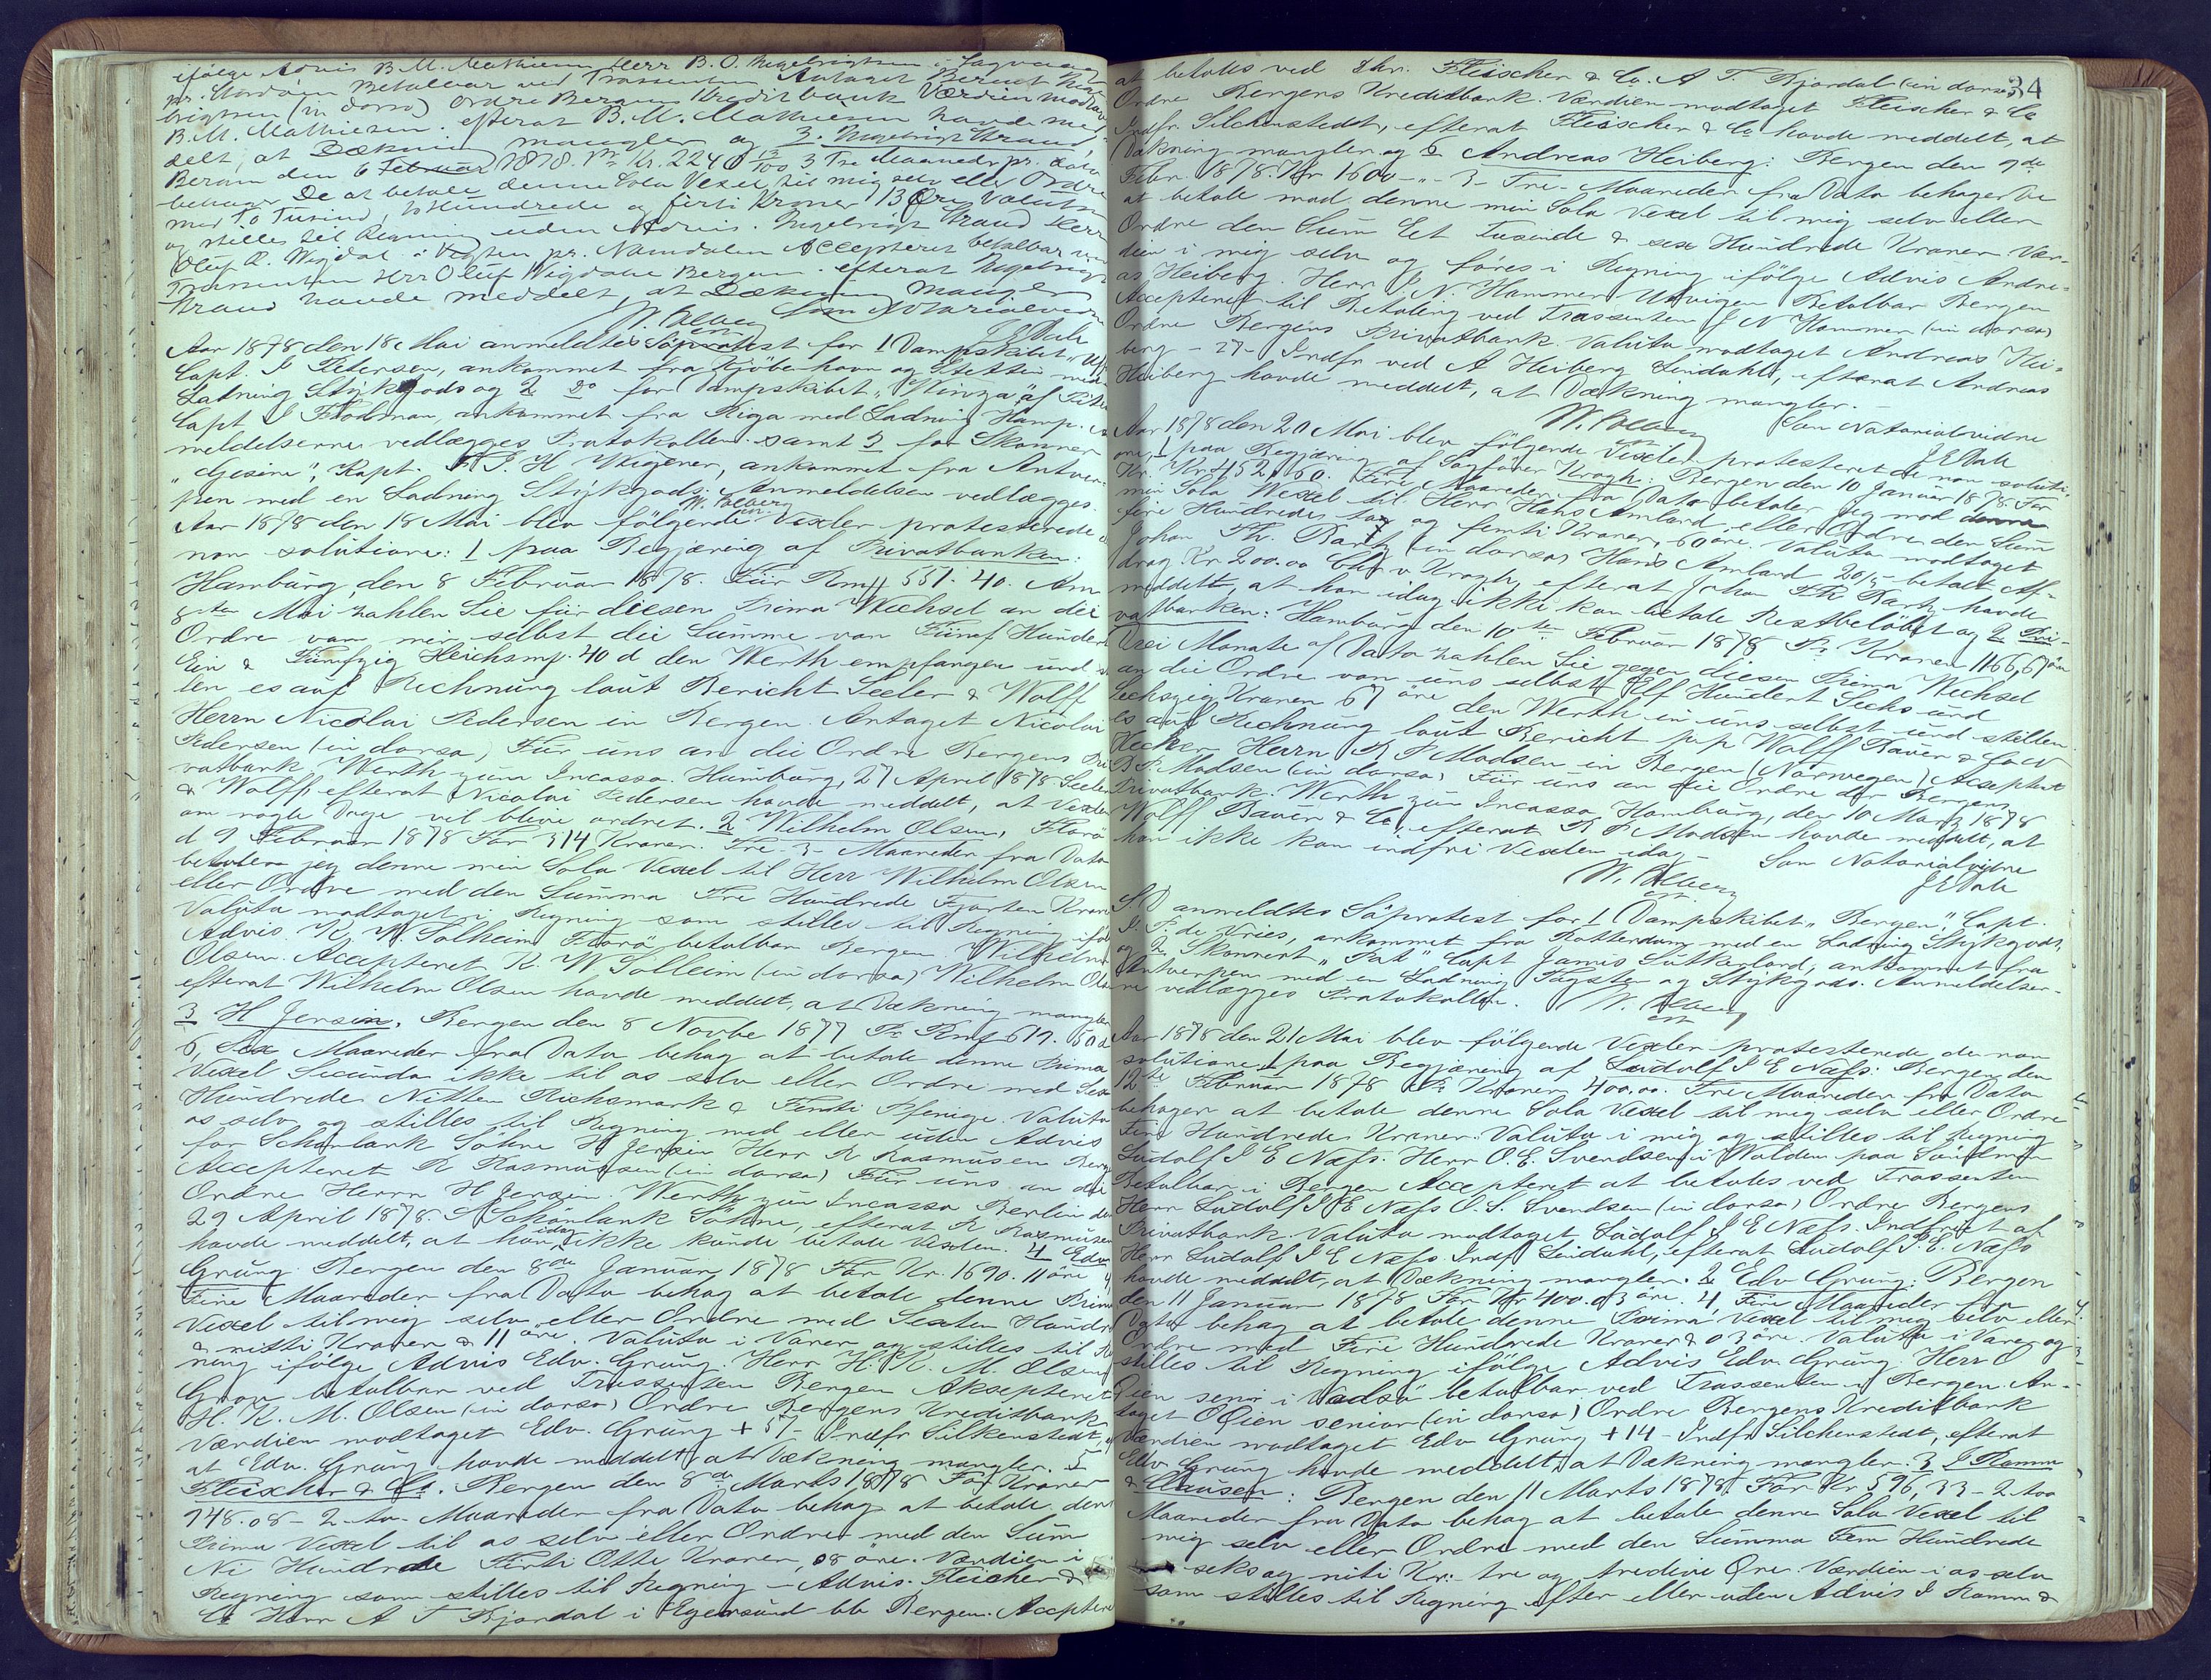 ifølge Advis B. M. Mathiesen Herr B. O. Ingebrigtsen i
betalbar ved Trassenten Antaget Berent Inge-
brigtsen (in dorso) Ordre Bergens Kreditbank Værdien modtaget
B. M. Mathiesen. efterat B. M. Mathiesen havde med-
delt, at Dækning mangler og 3. Ingebrigt Straud
Bergen den 6 Februar 1878. Pr Kr. 2240 13/100 3 Tre Maaneder pr. dato
behager De at betale denne Sola Vexel til mig selv eller Ordre
med To Tusind, to Hundrede og firti Kroner 13 Øre Valuta
og stilles til Regning uden Advis. Ingebrigt Straud Herr
Oluf A. Wigdal i Vigten pr. Namdalen Accepteret betalbar
Trassenten Herr Oluf Wigdahl Bergen. efterat Ingebrigt
Straud havde meddelt, at Dækning mangler
Som Notarialvidne
J E Dale
Aar 1878 den 18 Mai anmeldtes Søprotest for 1 Dampskibet
Capt. J Petersen, ankommet fra Kjøbenhavn og Stettin med
Ladning Stykgods og 2 do for Dampskibet "
Capt I Frodman, ankommet fra Riga med Ladning Hamp.
meldelserne vedlægges Protokollen samt 3 for Skonner
"Gesine", Kapt. J. H Wigener, ankommet fra Antwer-
pen med en Ladning Stykgods. Anmeldelsen vedlægges.
Aar 1878 den 18 Mai blev følgende Vexler protesterede
non solutione: 1 paa Begjæring af Privatbanken:
Hamburg, den 8 Februar 1878. Für Rm 551. 40. Am
8ten Mai zahlen Sie für diesen Prima Wechsel an die
Ordre von mir selbst die Summe von Fünf Hundert
Ein & Fünfzig Reichsm. 40 d den Werth empfangen und
len es auf Rechnung laut Bericht Seeler & Wolff
Herrn Nicolai Pedersen in Bergen. Antaget Nicolai
Pedersen (in dorso) Für uns an die Ordre Bergens Pri
vatbank. Werth zum Incasso. Hamburg, 27 April 1878 Seeler
& Wolff efterat Nicolai Pedersen havde meddelt, at Vexlen
om nogle Dage vil blive ordnet. 2 Wilhelm Olsen, Florø
d 9 Februar 1878 For 314 Kroner. Tre -3- Maaneder fra Dato
betaler jeg denne min Sola Vexel til Herr Wilhelm Olsen
eller Ordre med den Summa Tre Hundrede Fjorten Kroner
Valuta modtaget i Regning som stilles til Regning ifølge
Advis. K. W. Solheim Florø betalbar Bergen. Wilhelm
Olsen. Accepteret K. W Solheim (in dorso) Wilhelm Olsen
efterat Wilhelm Olsen havde meddelt, at Dækning mangler
3 H Jensin. Bergen den 8 Novbe 1877 Pr Rm 619. 50 d
6, Sex Maaneder fra Dato behag at betale denne Prima
Vexel Secunda ikke til os selv eller Ordre med Sex
Hundrede Nitten Richsmark & Femti Pfenige. Valuta
os selv og stilles til Regning med eller uden Advis
for Schønlank Söhne H Jensin Herr R Rasmusen Berg
Accepteret R Rasmussen (in dorso) Für uns an die
Ordre Herrn H Jensin. Werth zum Incasso Berlin den
29 April 1878. S Schønlank Söhne, efterat R Rasmusen
havde meddelt, at han idag ikke kunde betale Vexlen. 4 Edv
Grung. Bergen den 8de Januar 1878 For Kr. 1690. 11 øre 4,
Fire Maaneder fra Dato behag at betale denne Prima
Vexel til mig selv eller Ordre med Sexten Hundr
& nitti Kroner & 11 øre. Valuta i Varer og stilles til Reg
ning ifølge Advis Edv. Grung. Herr H. K. M. Olsen
betalbar ved Trassenten Bergen Aksepteret
H. K. M. Olsen (in dorso) Ordre Bergens Kreditbank
Værdien modtaget Edv. Grung + 57 - Indfr Silkenstedt,
at Edv. Grung havde meddelt, at Dækning mangler. 5
Fleischer & Co. Bergen den 8de Marts 1878 For Kroner
948.08 - 2 to Maaneder fra Dato behag at betale denne
Prima Vexel til os selv eller Ordre med den Sum
Ni Hundrede Firti Otte Kroner, 08 øre. Værdien i
Regning som stilles til Regning - Advis. Fleicher &
Co Herr A T Bjordal i Egersund bb Bergen. Acceptere
34
at betales ved Hrr. Fleischer & Co. A T. Bjordal (in dorso)
Ordre Bergens Kreditbank. Værdien modtaget Fleischer & Co
Indfr. Silchenstedt, efterat Fleischer & Co havde meddelt, at
Dækning mangler. og 6 Andreas Heiberg: Bergen den 9de
Febr. 1878. Kr 1600 -"- 3- Tre- Maaneder fra Dato behager De
at betale mod denne min Sola Vexel til mig selv eller
Ordre den Sum Et Tusinde & sex Hundrede Kroner. Vær-
dien i mig selv og føres i Regning ifølge Advis Andre-
as Heiberg. Herr J. N. Hammer Utvigen Betalbar Bergen
Accepteret til Betaling ved Trassenten J N Hammer (in dorso)
Ordre Bergens Privatbank. Valuta modtaget Andreas Hei-
berg - 27- Indfr ved A Heiberg Lindahl, efterat Andreas
Heiberg havde meddelt, at Dækning mangler.
Som Notarialvidne
J E Dale
Aar 1878 den 20 Mai blev følgende Vexler protesteret de non soluti-
one, 1 paa Begjæring af Sagfører Kragh: Bergen den 10 Januar 1878. For
Kr. Kr 452,60. Fire Maaneder fra Dato betaler jeg mod denne
min Sola Wexel til Herr Hans Amland eller Ordre den Sum
fire Hundrede to og femti Kroner, 60 øre. Valuta modtaget
Johan Th. Bartz (in dorso) Hans Amland 20/5 betalt Af-
drag Kr 200.00 Chr v Kragh, efterat Johan Th. Bartz havde
meddelt, at han idag ikke kan betale Restbeløbet og 2 Pri-
vatbanken: Hamburg den 10ten Februar 1878 Pr Kronen 1166,67 øre
Drei Monate af Dato zahlen Sie gegen diesen Prima Wechsel
an die Ordre von uns selbst Elf Hundert Sechs und
Sechszig Kronen 67 øre den Werth in uns selbst und stellen
es auf Rechnung laut Bericht p p Wolff Bauer & Co W
Hecker Herrn R P Madsen in Bergen (Norwegen) Acceptert
R P. Madsen (in dorso) Für uns an die Ordre der Bergens
Privatbank. Werth zum Incasso Hamburg, den 10 März 1878
Wolff Bauer & Co, efterat R P Madsen havde meddelt, at
han ikke kan indfri Vexlen idag. Som Notarialvidne
J E Dale
S D anmeldtes Søprotest for 1 Dampskibet "Bergen", Capt.
de Vries, ankommet fra Rotterdam med en Ladning Stykgods,
og 2 Skonnert "Pat" Capt James Sutherland, ankommet fra
Antverpen med en Ladning Tagsten og Stykgods. Anmeldelser-
ne vedlægges Protokollen.
Aar 1878 den 21 Mai blev følgende Vexler protesterede de non
solutione 1 paa Begjæring af Ludolf J E Næss: Bergen den
12te Februar 1878 Pr Kroner 400.00. Tre Maaneder fra Dato
behager at betale denne Sola Vexel til mig selv eller Ordre
Fire Hundrede Kroner. Valuta i mig og stilles til Regning
Ludolf J E Næss. Herr O. E. Svendsen i Volden paa Søndmør
Betalbar i Bergen Accepteret at betales ved Trassenten
Herr Ludolf J E Næss O. E. Svendsen (in dorso) Ordre Bergens
Privatbank. Valuta modtaget Ludolf J E Næss. Indfriet af
Herr Ludolf J E Næss Indf Lindahl, efterat Ludolf J. E. Næss
havde meddelt, at Dækning mangler. 2 Edv Grung: Bergen
den 11 Januar 1878 For Kr 400.03 øre. 4, Fire Maaneder fra
Dato behag at betale denne Prima Vexel til mig selv eller
Ordre med Fire Hundrede Kroner & 03 øre. Valuta i Varer og
stilles til Regning ifølge Advis Edv. Grung. Herr O
Qien senr i Vadsø betalbar ved Trassenten i Bergen. An-
taget O Qien senior (in dorso) Ordre Bergens Kreditbank
Værdien modtaget Edv Grung + 14 - Indfr Silchenstedt, efterat
Edv Grung havde meddelt, at Dækning mangler. 3 J Ramm
& Clausen: Bergen den 11 Marts 1878. For Kr 596,33 - 2 too
Maaneder fra Dato behag at betale denne Sola Vexel til
mig selv eller Ordre med den Summa Fem Hundrede
seks og niti Kr: tre og tredive Øre. Værdien i os selv
som stilles til Regning efter eller uden Advis J Ramm &